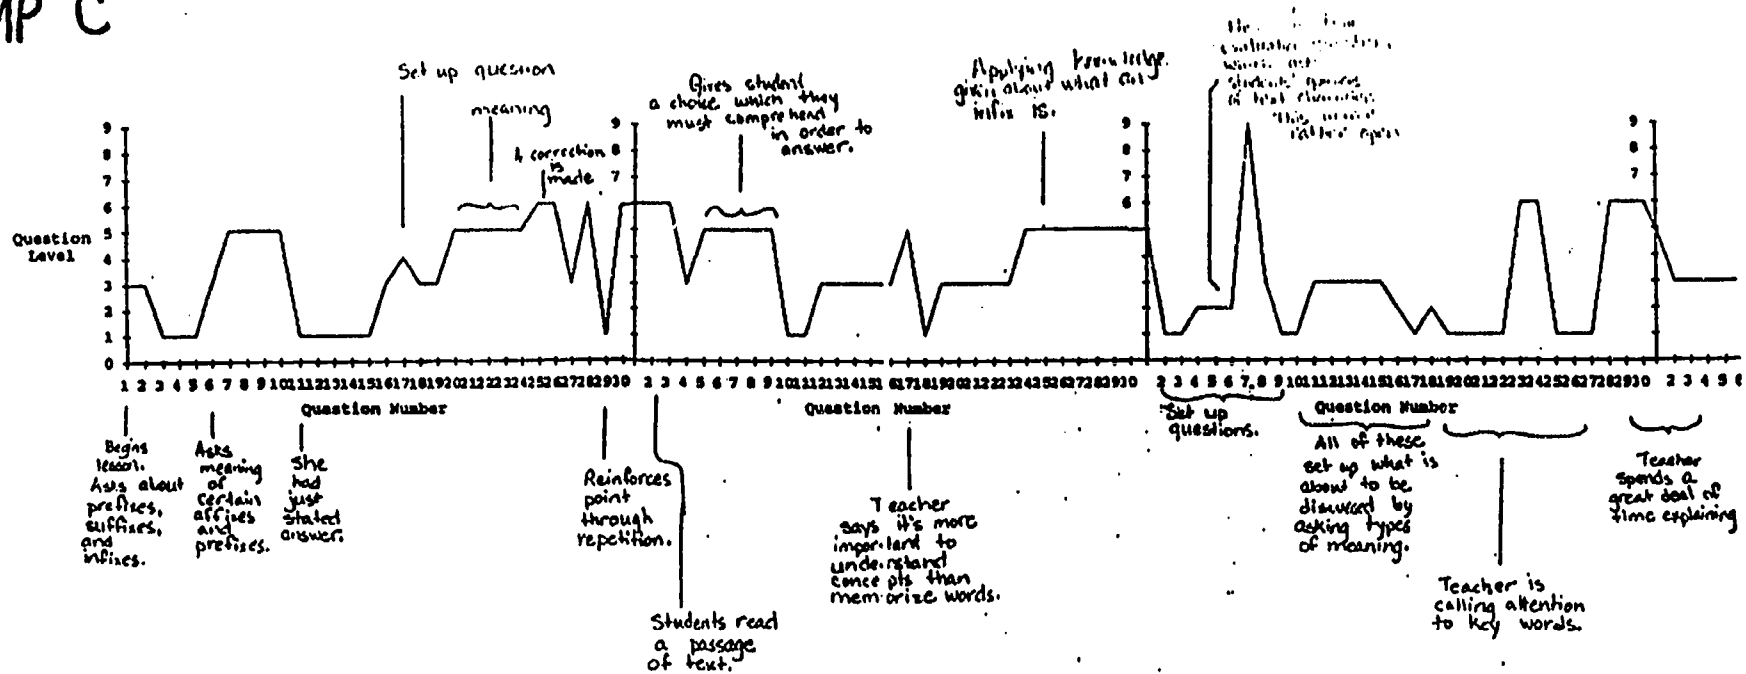 MP C
Set up question
meaning
A correction
is
made
Gives student
a choice which they
must comprehend
in order to
answer.
Applying knowledge
given about what an
infix is.
students
of text
This
Question
Level
9
8
7
6
5
4
3
2
1
0
9
8
7
9
8
7
6
9
8
7
1 2 3 4 5 6 7 8 9 10 11 12 13 14 15 16 17 18 19 20 21 22 23 24 25 26 27 28 29 30
2 3 4 5 6 7 8 9 10 11 12 13 14 15 16 17 18 19 20 21 22 23 24 25 26 27 28 29 30
2 3 4 5 6 7 8 9 10 11 12 13 14 15 16 17 18 19 20 21 22 23 24 25 26 27 28 29 30
2 3 4 5 6
Question Number
Question Number
Question Number
Begins
lesson.
Asks about
prefixes,
suffixes,
and
infixes.
Asks
meaning
of
certain
affixes
and
prefixes.
She
had
just
stated
answer.
Reinforces
point
through
repetition.
Students read
a passage
of text.
Teacher
says it's more
important to
understand
concepts than
memorize words.
Set up
questions.
All of these
set up what is
about to be
discussed by
asking types
of meaning.
Teacher is
calling attention
to key words.
Teacher
spends a
great deal of
time explaining